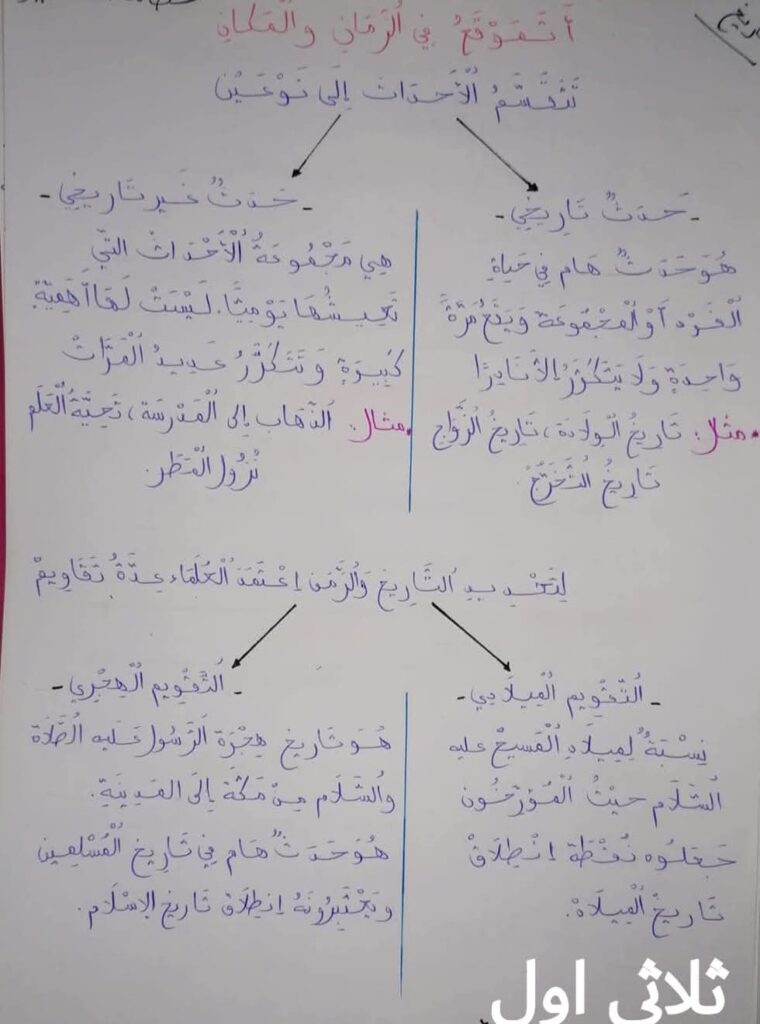 تاريخ
أَتَمَوْقَعُ فِي الزَّمَانِ وَالْمَكَانِ
تَنْقَسِمُ الْأَحْدَاثُ إِلَى نَوْعَيْنِ
- حَدَثٌ تَارِيخِي -
هُوَ حَدَثٌ هَام فِي حَيَاةِ
الْفَرْد أَوِ الْمَجْمُوعَة وَيَقَعُ مَرَّةً
وَاحِدَةٍ وَلَا يَتَكَرَّرُ إِلَّا نَادِرًا
مثل: تَارِيخُ الْوِلَادَة، تَارِيخُ الزَّوَاج
تَارِيخُ التَّخَرُّجْ.
- حَدَثٌ غَيْر تَارِيخِي -
هِي مَجْمُوعَةُ الْأَحْدَاثْ الَّتِي
نَعِيشُهَا يَوْمِيًّا. لَيْسَتْ لَهَا أَهَمِيَّة
كَبِيرَةٍ وَتَتَكَرَّرُ عَدِيدُ الْمَرَّاتْ
مثال: الذَّهَاب إِلى الْمَدْرَسَة، تَحِيَّةُ الْعَلَم
نُزُول الْمَطَر.
لِتَحْدِيدِ التَّارِيخِ وَالزَّمَن اِعْتَمَدَ الْعُلَمَاء عِدَّةُ تَقَاوِيمْ
- التَّقْوِيم الْمِيلَادِي -
نِسْبَةً لِمِيلَادِ الْمَسِيحْ عليه
السَّلَام حَيْثُ الْمُؤَرِّخُون
جَعَلُوه نُقْطَة اِنْطِلَاقْ
تَارِيخُ الْمِيلَاد.
- التَّقْوِيم الْهِجْرِي -
هُوَ تَارِيخ هِجْرَة الرَّسُول عَلَيه الصَّلَاة
والسَّلَام مِنْ مَكَّة إِلَى الْمَدِينَةِ.
هُوَ حَدَثٌ هَام فِي تَارِيخِ الْمُسْلِمِين
وَيَعْتَبِرُونَهُ اِنْطِلَاق تَارِيخ الإِسْلَام.
ثلاثي اول